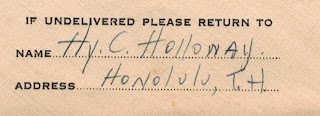 IF UNDELIVERED PLEASE RETURN TO
NAME Hy. C. Holloway.
ADDRESS Honolulu, T.H.